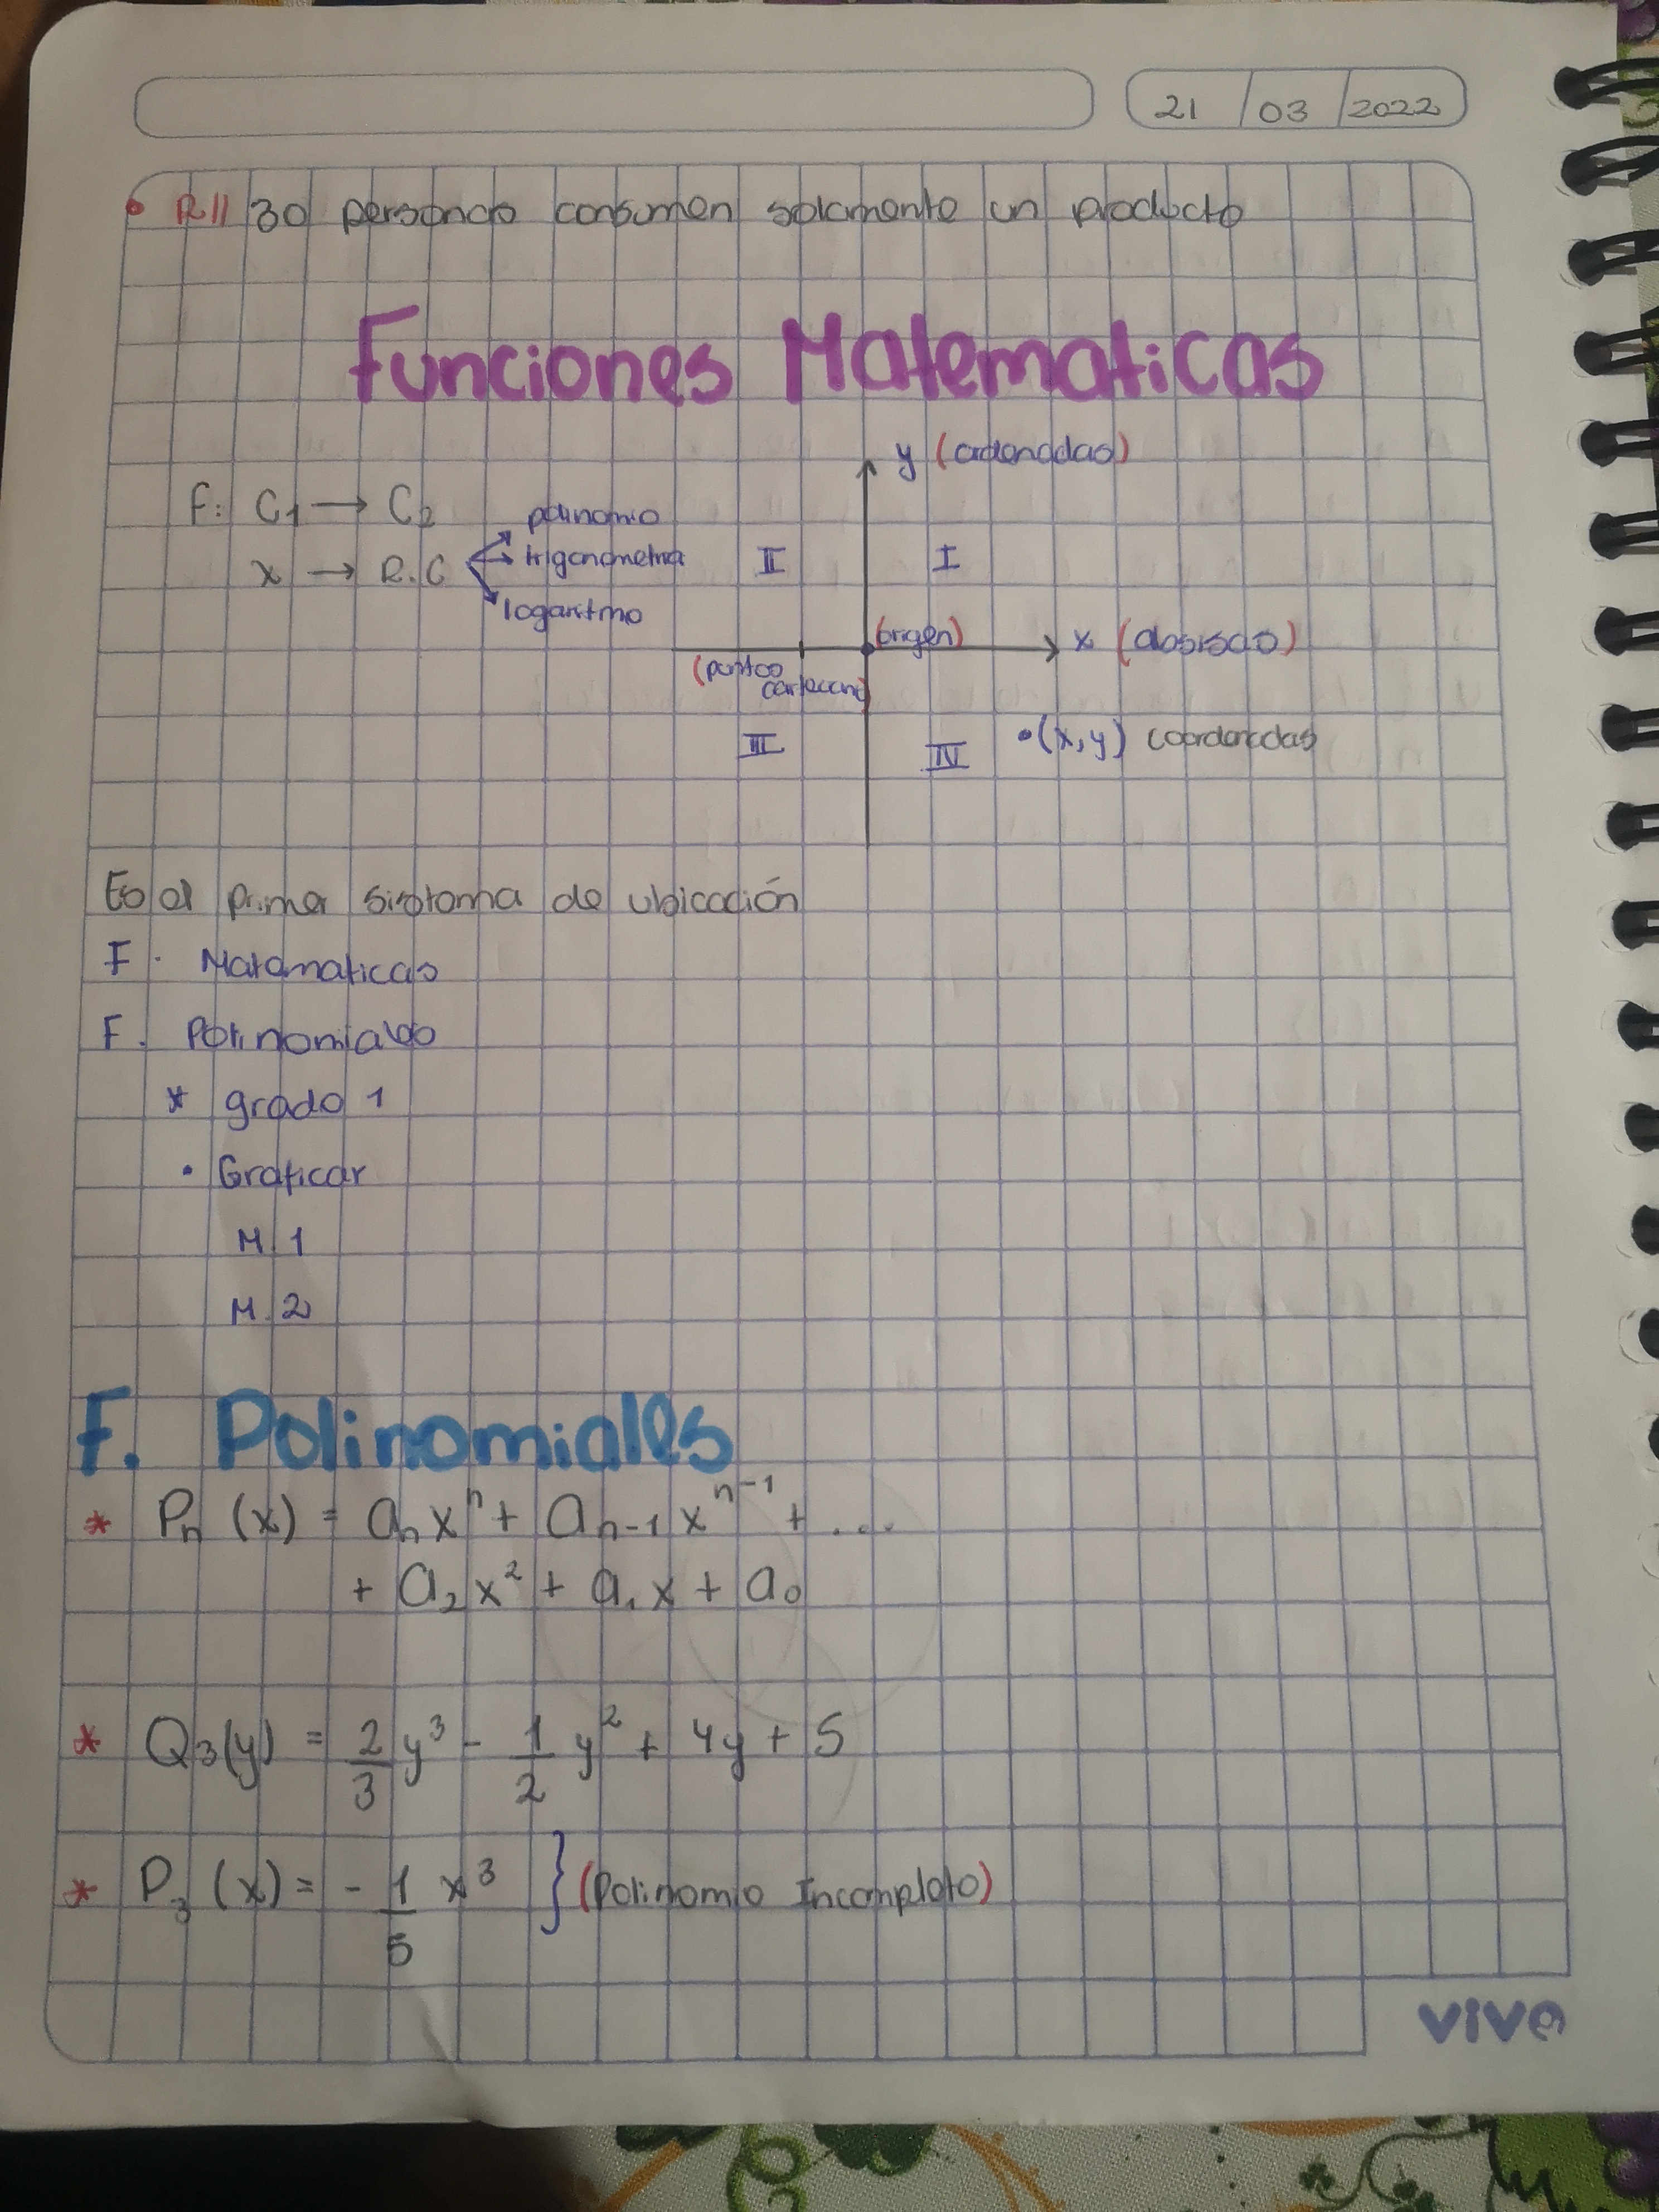 21 / 03 / 2022
• R// 30 personas consumen solamente un producto
Funciones Matematicas
F: C1 → C2
x → R.C
polinomio
trigonometria
logaritmo
y (ordenadas)
II
I
(origen)
x (absisas)
(puntos
cartesiano)
III
IV
•(x,y) coordenadas
Es el primer sistema de ubicación
F. Matematicas
F. Polinomiales
* grado 1
• Graficar
M.1
M.2
F. Polinomiales
* Pₙ (x) = aₙxⁿ + aₙ₋₁xⁿ⁻¹ + ...
+ a₂x² + a₁x + a₀
* Q₃(y) = 2/3 y³ - 1/2 y² + 4y + 5
* P₃ (x) = - 1/5 x³ } (Polinomio Incompleto)
vive